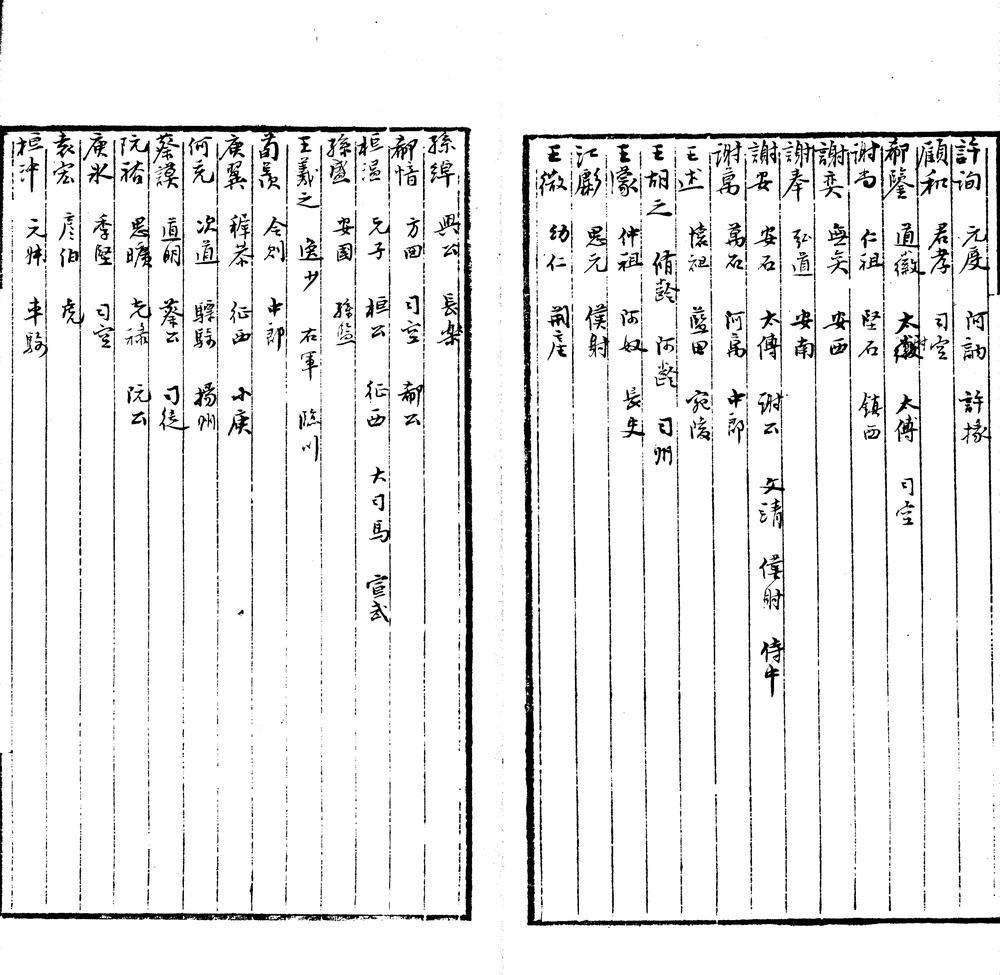 許詢 元度 阿訥 許掾
顧和 君孝 司空
郗鑒 道徽 太尉 太傅 司空
谢尚 仁祖 堅石 鎮西
謝奕 無奕 安西
謝奉 弘道 安南
謝安 安石 太傅 谢公 文靖 僕射 侍中
谢萬 萬石 阿萬 中郎
王述 懷祖 藍田 宛陵
王胡之 脩齡 阿齡 司州
王濛 仲祖 阿奴 長史
江虨 思元 僕射
王微 幼仁 荆産
孫綽 興公 長樂
郗愔 方回 司空 郗公
桓温 元子 桓公 征西 大司馬 宣武
孫盛 安國 孫監
王羲之 逸少 右軍 臨川
荀羨 令則 中郎
庾翼 穉恭 征西 小庾
何充 次道 驃騎 揚州
蔡謨 道明 蔡公 司徒
阮裕 思曠 光禄 阮公
庾氷 季堅 司空
袁宏 彦伯 虎
桓沖 元叔 車騎